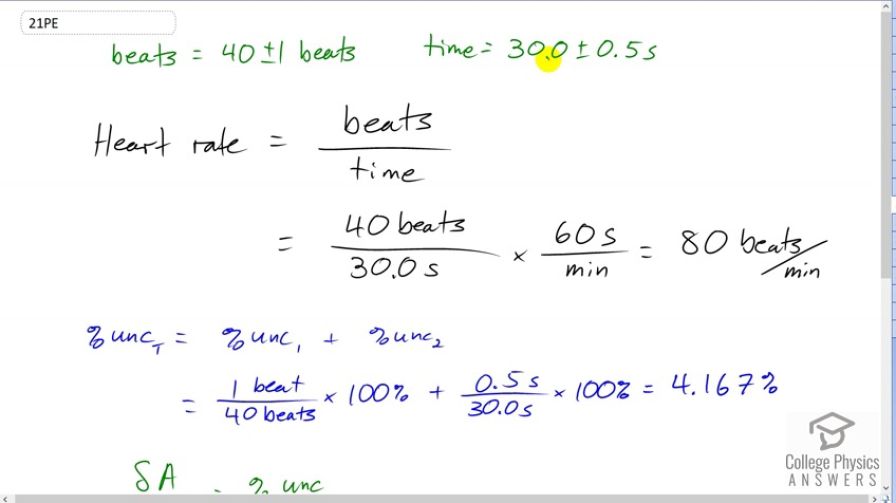 21PE
beats = 40 ± 1 beats time = 30.0 ± 0.5 s
Heart rate = beats / time
= 40 beats / 30.0 s × 60 s / min = 80 beats/min
% unc_T = % unc_1 + % unc_2
= 1 beat / 40 beats × 100% + 0.5 s / 30.0 s × 100% = 4.167 %
δA = % unc
College Physics
ANSWERS